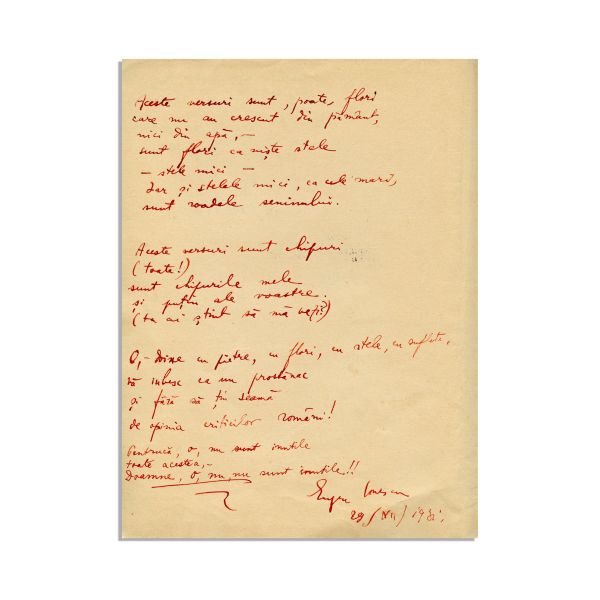 Aceste versuri sunt, poate, flori
care nu au crescut din pământ,
nici din apă, –
sunt flori ca niște stele
– stele mici –
dar și stelele mici, ca cele mari,
sunt roadele seninului.
Aceste versuri sunt chipuri
(toate!)
sunt chipurile mele
și puțin ale voastre.
să mă
O, – cu pietre, cu flori, cu stele, cu suflete,
vă iubesc ca un prostănac
și fără să țin seamă
de opinia criticilor români!
Pentrucă, o, nu sunt inutile
toate acestea, –
Doamne, o, nu, nu sunt inutile!!
Eugen Ionescu
29 (XII) 1931.